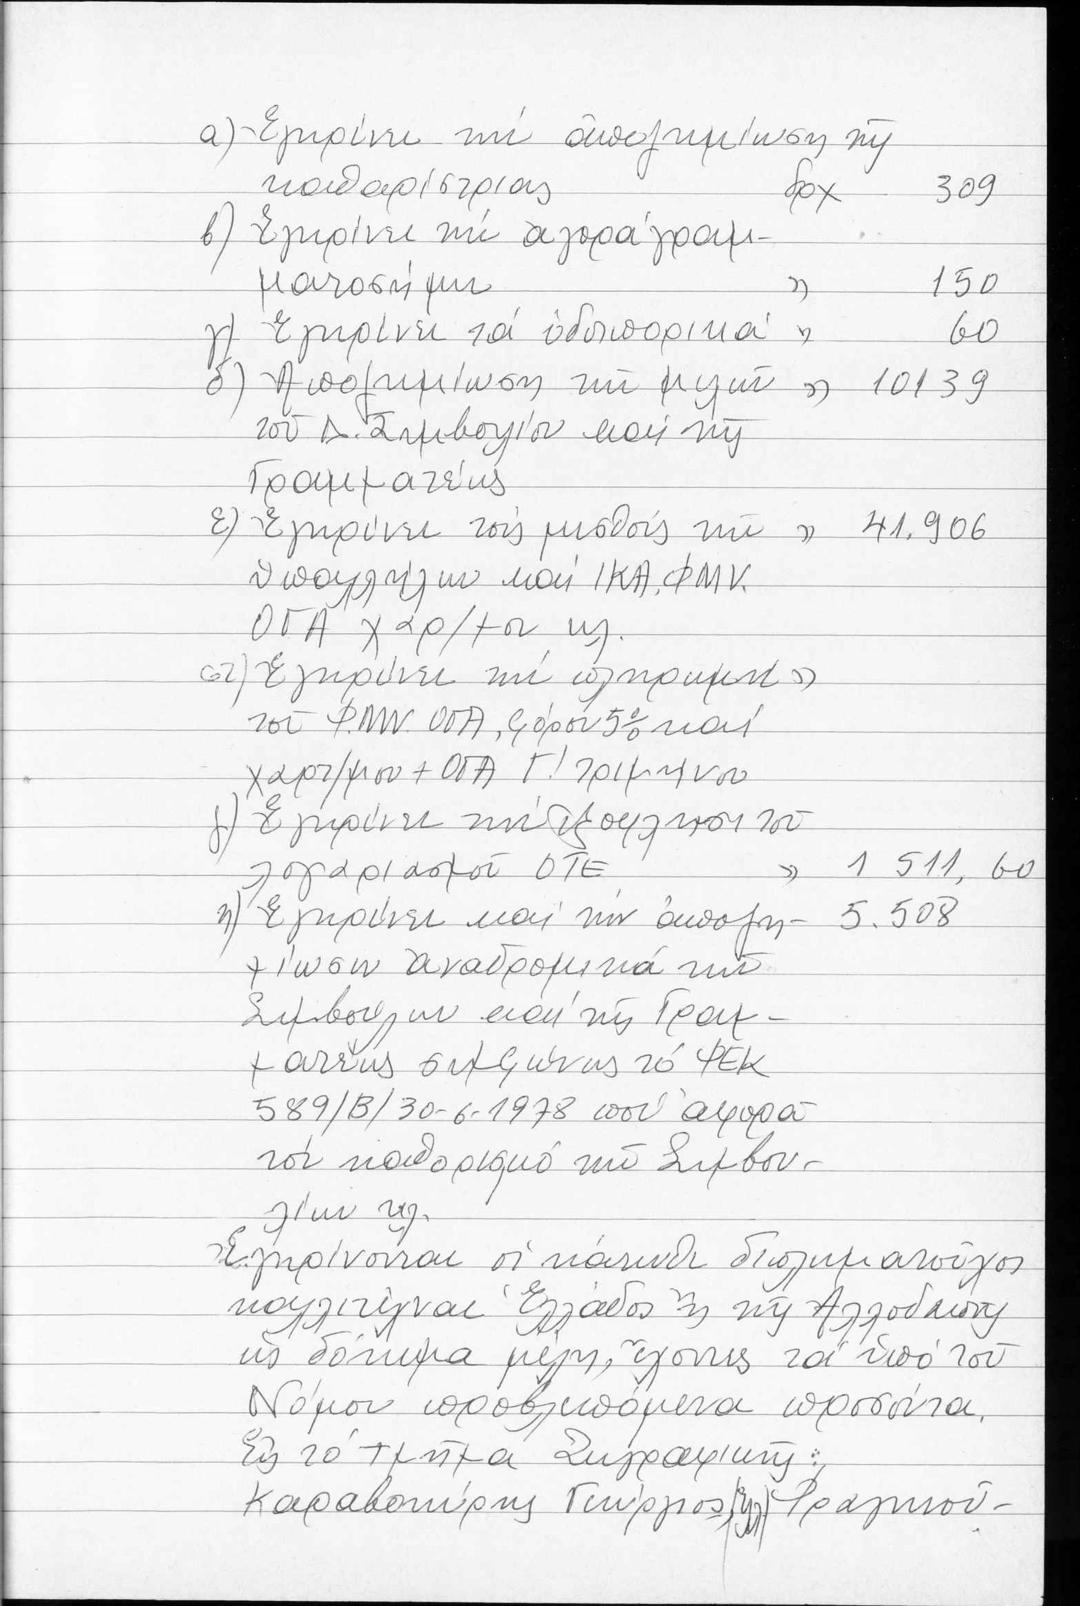 α) Ἐγκρίνει τήν ἀποζημίωση τῆς
καθαρίστριας δρχ 309
β) Ἐγκρίνει τήν ἀγορά γραμ-
ματοσήμων " 150
γ) Ἐγκρίνει τά ὁδοιπορικά " 60
δ) Ἀποζημίωση τῶν μελῶν " 10139
τοῦ Δ. Συμβουλίου καί τῆς
Γραμματέως
ε) Ἐγκρίνει τούς μισθούς τῶν " 41.906
ὑπαλλήλων καί ΙΚΑ, ΦΜΥ.
ΟΓΑ χαρ/μου κλ.
στ) Ἐγκρίνει τήν πληρωμή "
τοῦ Φ.ΜΥ. ΟΓΑ, φόρου 5% καί
χαρτ/μου + ΟΓΑ Γ! τριμήνου
ζ) Ἐγκρίνει τήν ἐξόφληση τοῦ
λογαριασμοῦ ΟΤΕ " 1 511, 60
η) Ἐγκρίνει καί τήν ἀποζη- 5.508
μίωσιν ἀναδρομικά τῶν
Συμβούλων καί τῆς Γραμ-
ματέως συμφώνως τό ΦΕΚ
589/Β/30-6-1978 πού ἀφορᾶ
τόν καθορισμό τῶν Συμβου-
λίων κλ.
Ἐγκρίνονται οἱ κάτωθι διπλωματοῦχοι
καλλιτέχναι Ἑλλάδος ἤ τῆς Ἀλλοδαπῆς
ὡς δόκιμα μέλη, ἔχοντες τά ὑπό τοῦ
Νόμου προβλεπόμενα προσόντα.
Εἰς τό τμῆμα Ζωγραφικῆς:
Καραβοκύρης Γεώργιος, Φραγκού-